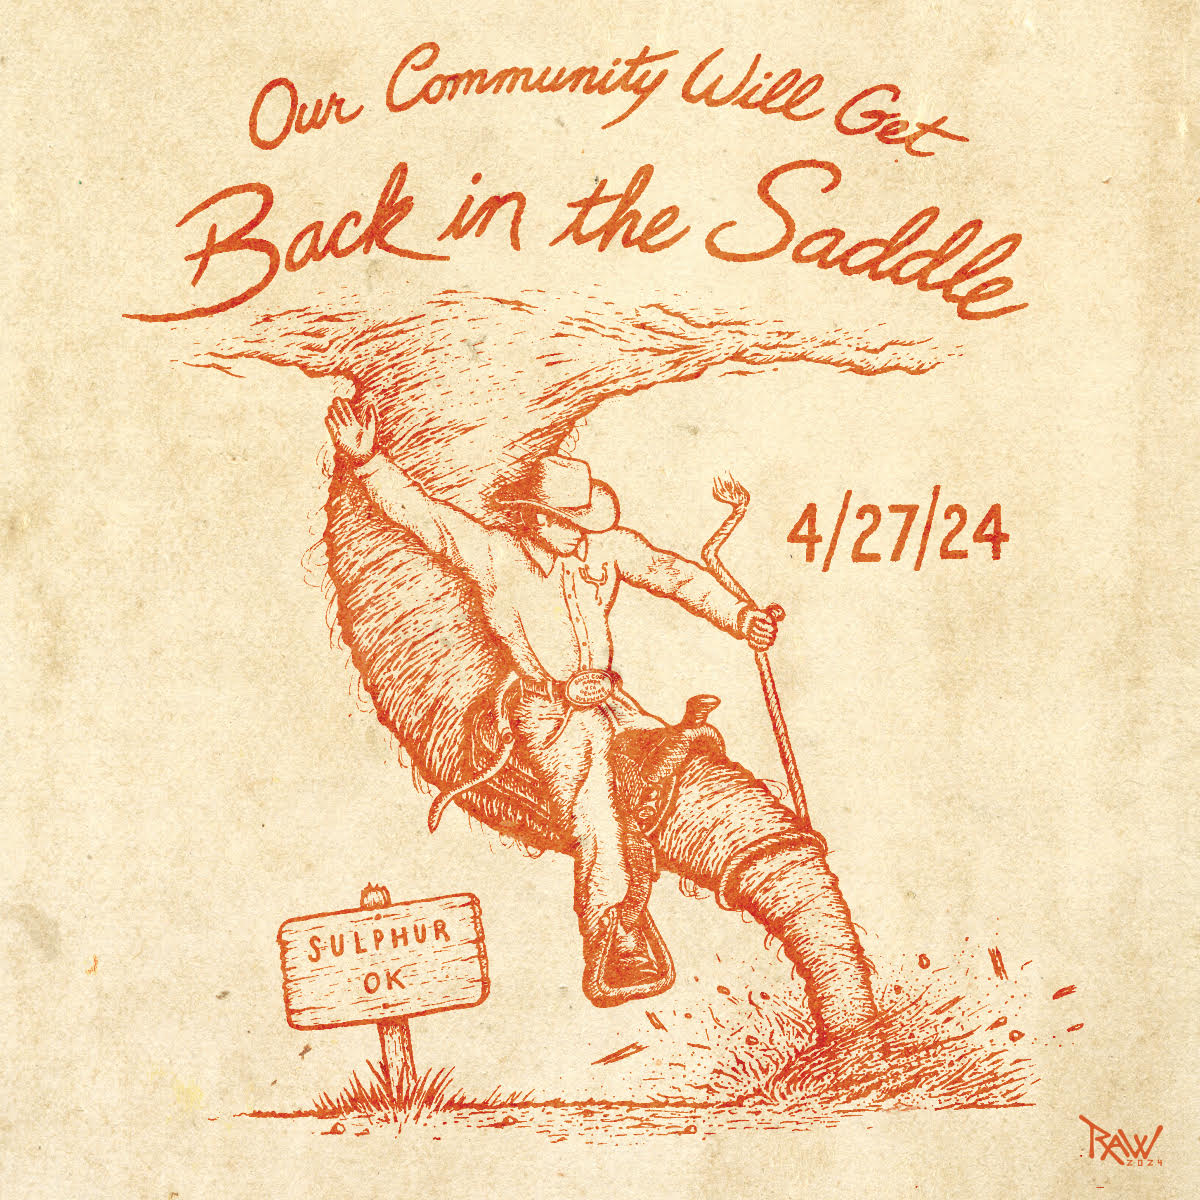 Our Community Will Get
Back in the Saddle
4/27/24
SULPHUR
OK
RAW
2024